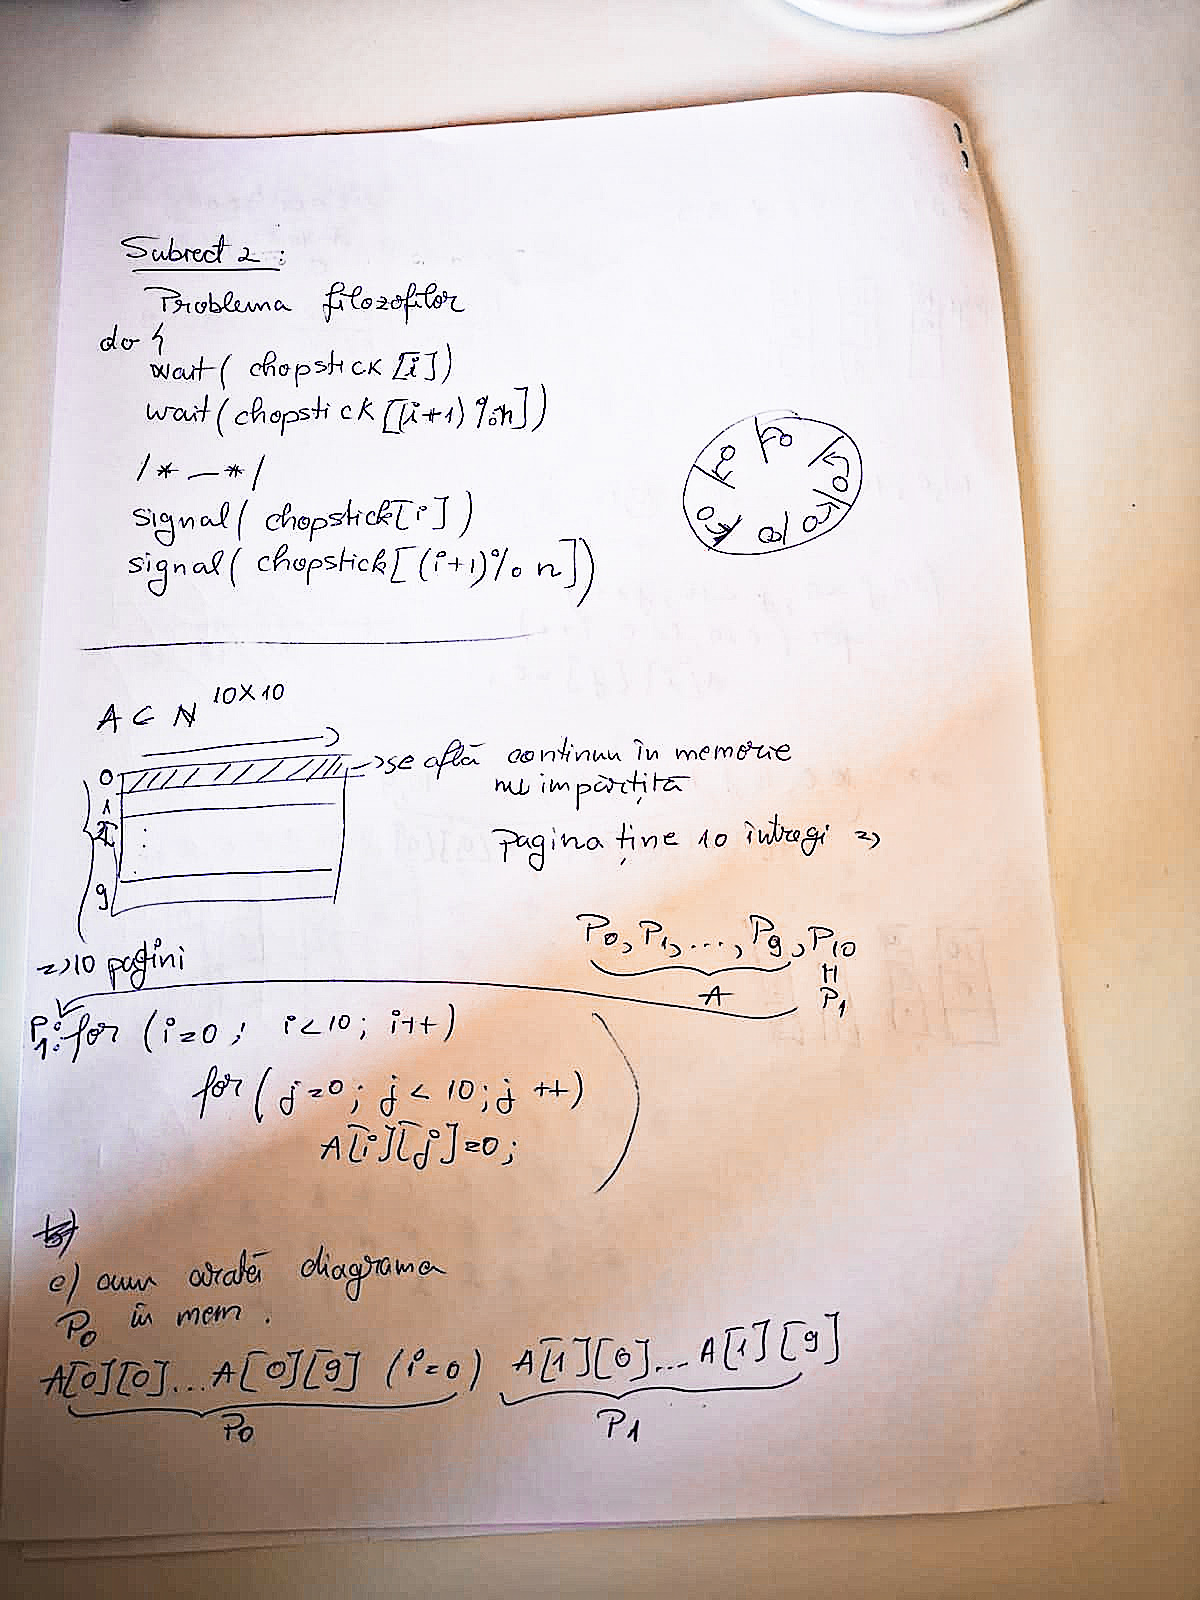 Subiect 2:
Problema filozofilor
do {
wait( chopstick [i])
wait(chopstick [(i+1) %n])
/* — */
signal( chopstick[i] )
signal( chopstick[(i+1)% n])
A ⊂ N 10x10
0 → se află continuu în memorie
1 neîmpărțită
2
Pagina ține 10 întregi =>
9
P0, P1, ..., P9, P10
=> 10 pagini
A P1
P1: for (i=0; i<10; i++)
for( j=0; j < 10; j ++)
A[i][j]=0;
c) cum arată diagrama
P0 în mem.
A[0][0]...A[0][9] (i=0) A[1][0]...A[1][9]
P0 P1